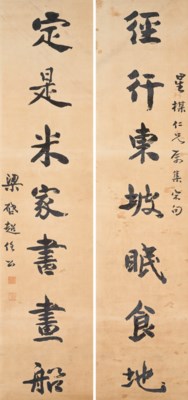 徑行東坡眠食地
星樸仁兄屬集宋句
定是米家書畫船
梁啓超任公